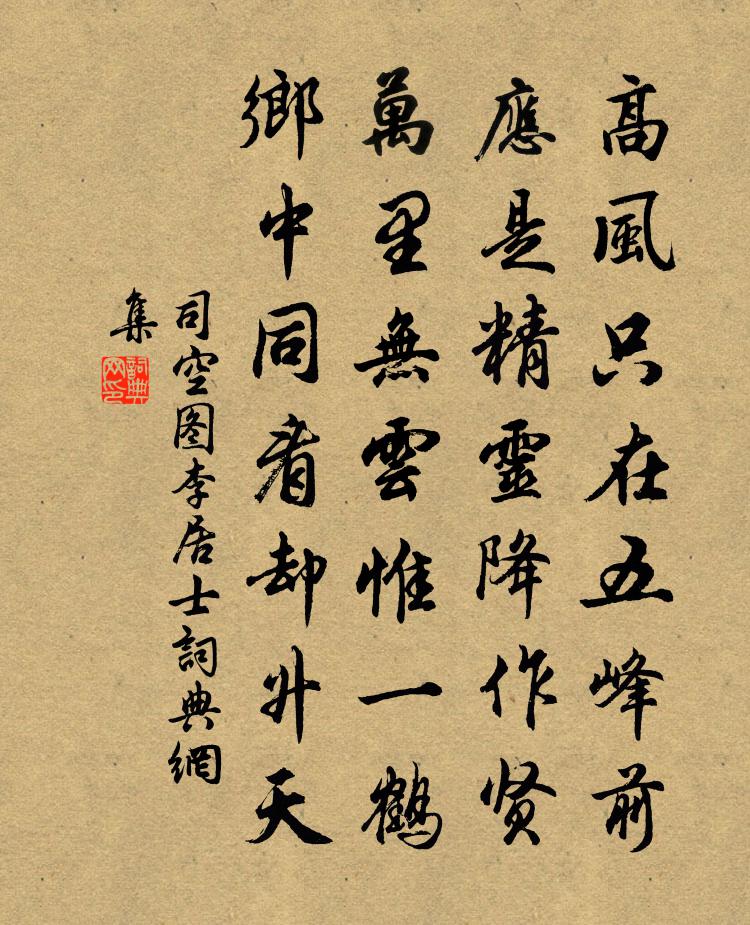 高風只在五峰前
應是精靈降作贤
萬里無雲惟一鶴
鄉中同看却升天
司空图李居士詞典網
集
詞典网印